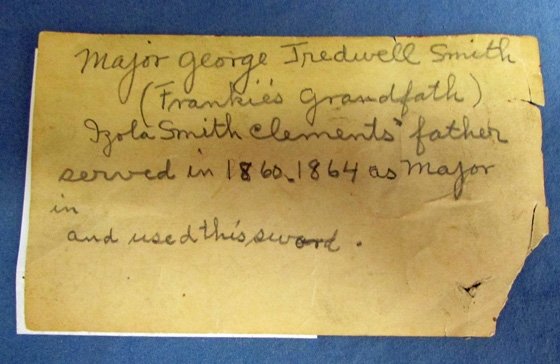 Major George Tredwell Smith
(Frankie's Grandfath)
Izola Smith Clements' father
served in 1860-1864 as Major
in
and used this sword.